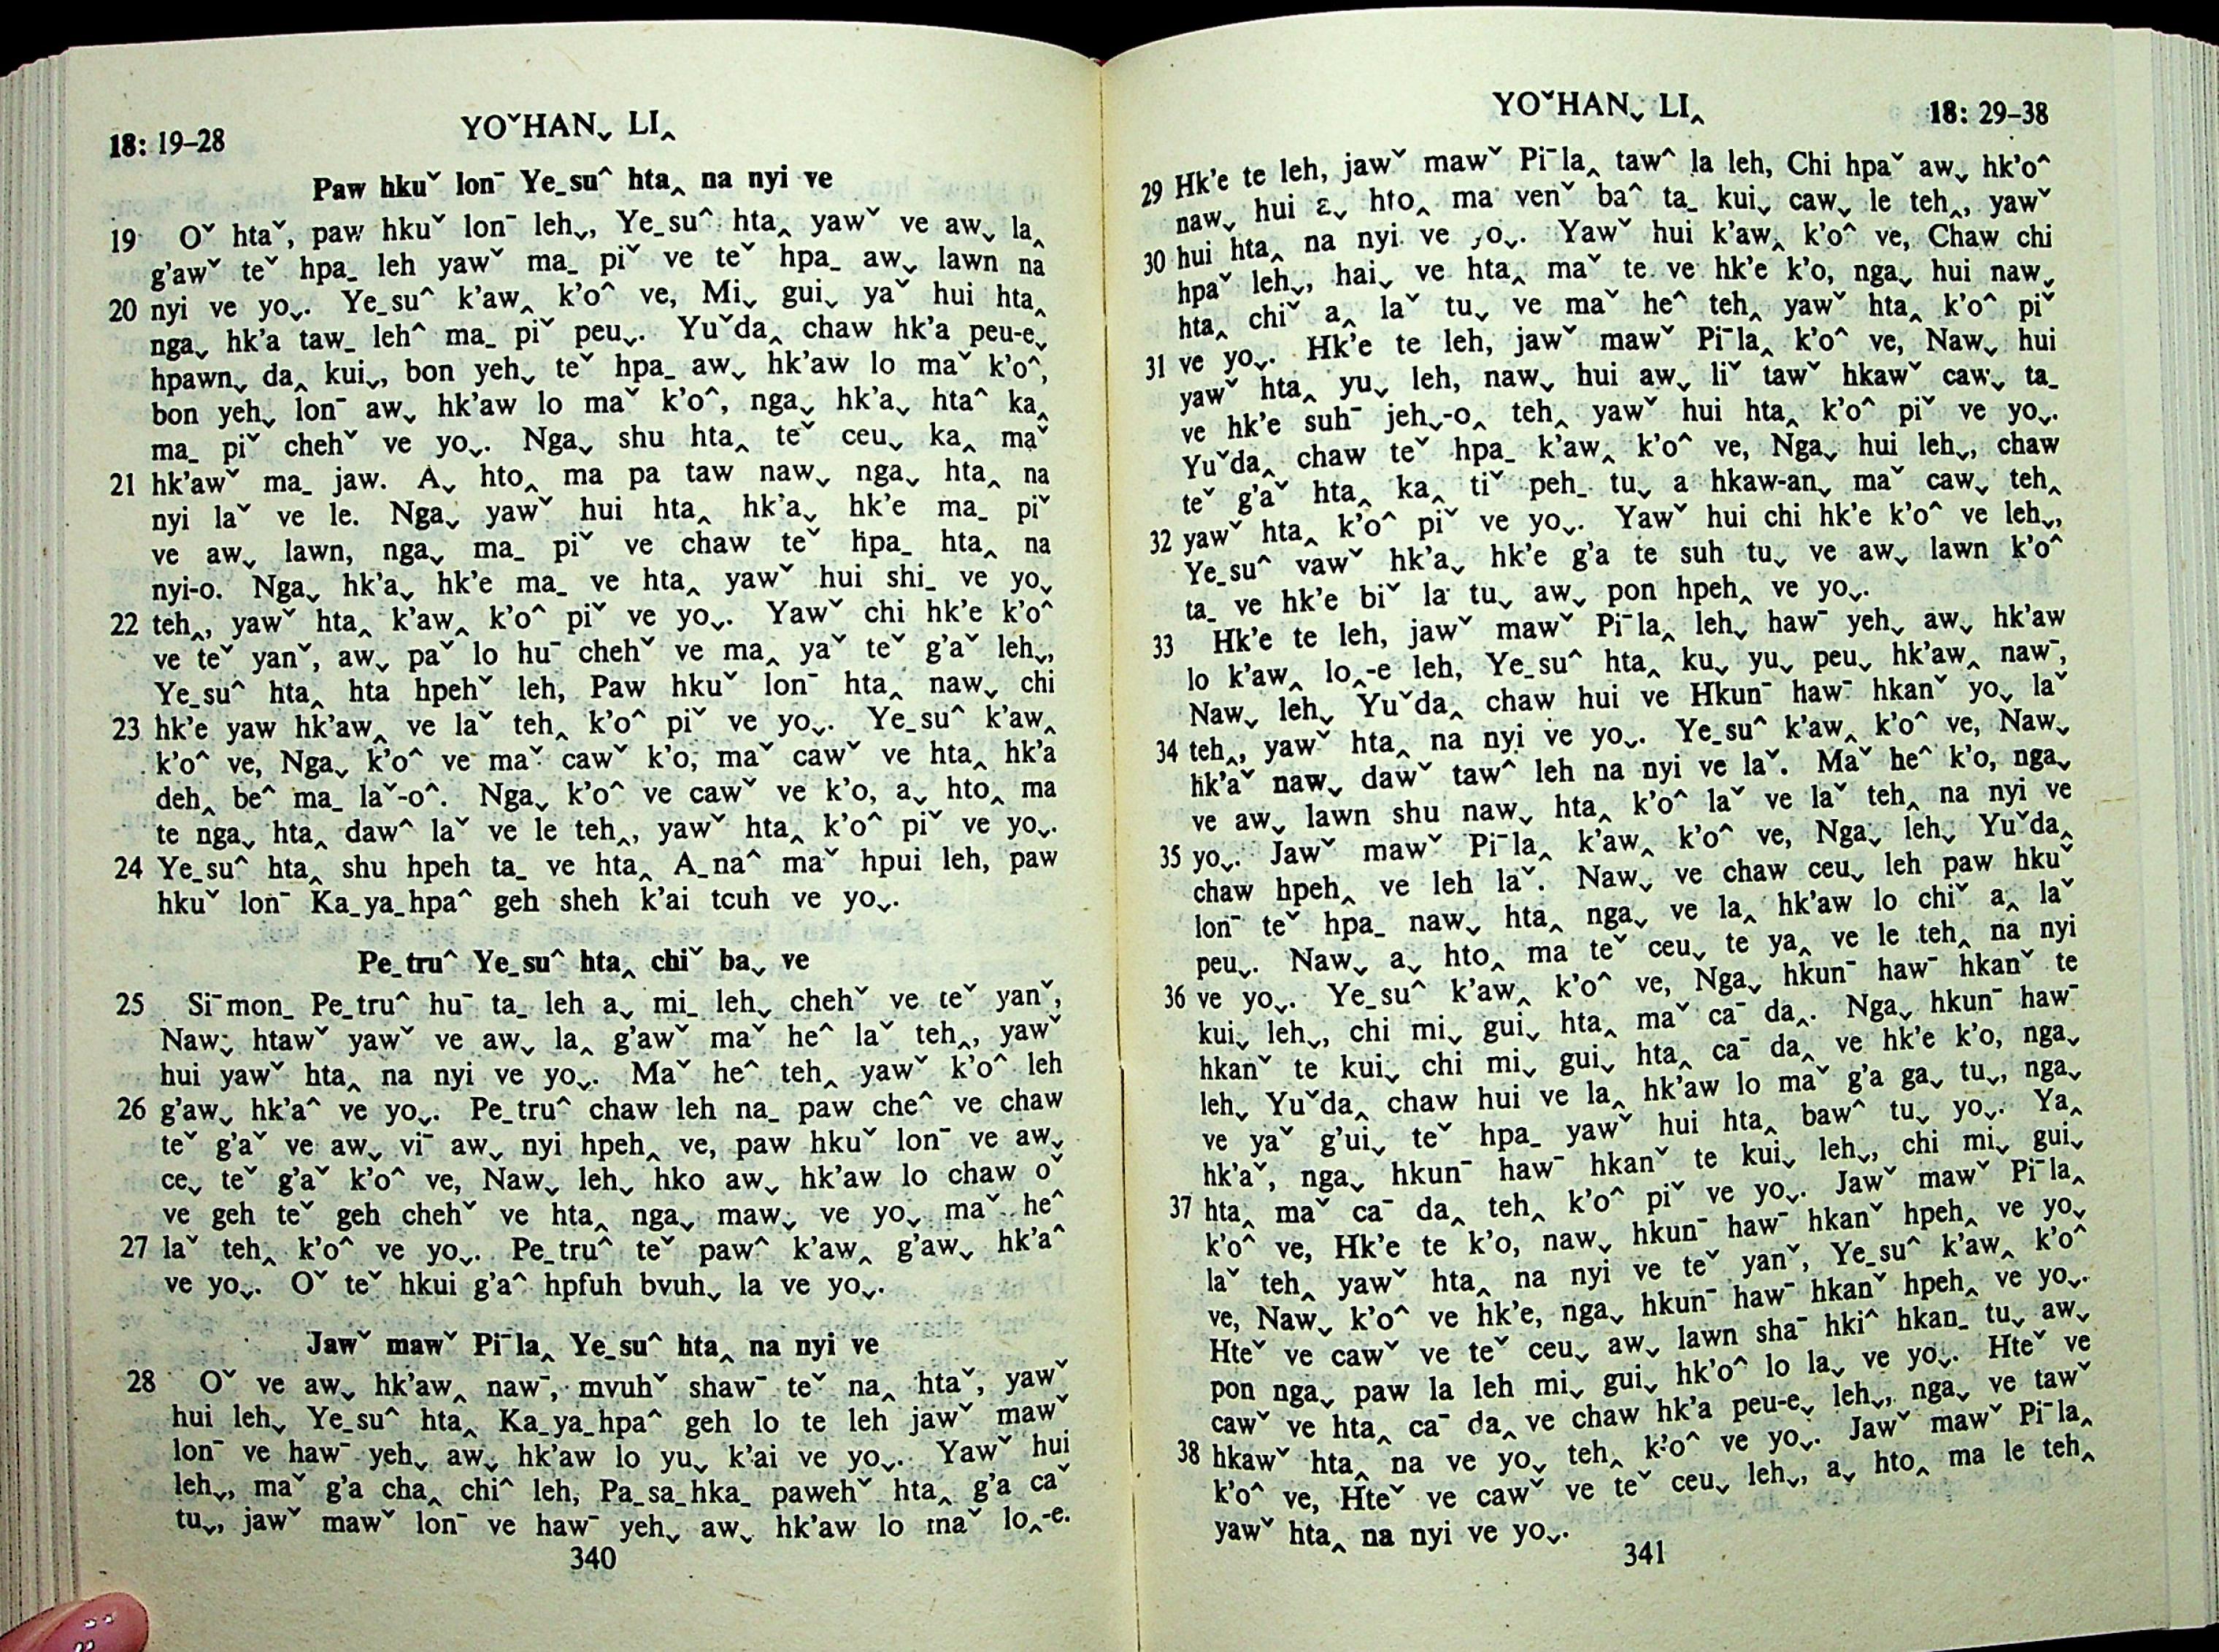 18: 19–28
YOˇHANˬ LI‸
Paw hkuˇ lonˉ Ye_suˆ hta‸ na nyi ve
19 Oˇ htaˇ, paw hkuˇ lonˉ lehˬ, Ye_suˆ hta‸ yawˇ ve awˬ la‸
g’awˇ teˇ hpa_ leh yawˇ ma_ piˇ ve teˇ hpa_ awˬ lawn na
20 nyi ve yoˬ. Ye_suˆ k’aw‸ k’oˆ ve, Miˬ guiˬ yaˇ hui hta‸
ngaˬ hk’a taw_ lehˆ ma_ piˇ peuˬ. Yuˇda‸ chaw hk’a peu-eˬ
hpawnˬ da‸ kuiˬ, bon yehˬ teˇ hpa_ awˬ hk’aw lo maˇ k’oˆ,
bon yehˬ lonˉ awˬ hk’aw lo maˇ k’oˆ, ngaˬ hk’aˬ htaˆ ka‸
ma_ piˇ chehˇ ve yoˬ. Ngaˬ shu hta‸ teˇ ceuˬ ka‸ maˇ
21 hk’awˇ ma_ jaw. Aˬ hto‸ ma pa taw nawˬ ngaˬ hta‸ na
nyi laˇ ve le. Ngaˬ yawˇ hui hta‸ hk’aˬ hk’e ma_ piˇ
ve awˬ lawn, ngaˬ ma_ piˇ ve chaw teˇ hpa_ hta‸ na
nyi-o. Ngaˬ hk’aˬ hk’e ma_ ve hta‸ yawˇ hui shi_ ve yoˬ
22 teh‸, yawˇ hta‸ k’aw‸ k’oˆ piˇ ve yoˬ. Yawˇ chi hk’e k’oˆ
ve teˇ yanˇ, awˬ paˇ lo huˉ chehˇ ve ma‸ yaˇ teˇ g’aˇ lehˬ,
Ye_suˆ hta‸ hta hpehˇ leh, Paw hkuˇ lonˉ hta‸ nawˬ chi
23 hk’e yaw hk’aw‸ ve laˇ teh‸ k’oˆ piˇ ve yoˬ. Ye_suˆ k’aw‸
k’oˆ ve, Ngaˬ k’oˆ ve maˇ cawˇ k’o, maˇ cawˇ ve hta‸ hk’a
deh‸ beˆ ma_ laˇ-oˆ. Ngaˬ k’oˆ ve cawˇ ve k’o, aˬ hto‸ ma
te ngaˬ hta‸ dawˆ laˇ ve le teh‸, yawˇ hta‸ k’oˆ piˇ ve yoˬ.
24 Ye_suˆ hta‸ shu hpeh ta_ ve hta‸ A_naˆ maˇ hpui leh, paw
hkuˇ lonˉ Ka_ya_hpaˆ geh sheh k’ai tcuh ve yoˬ.
Pe_truˆ Ye_suˆ hta‸ chiˇ baˬ ve
25 Siˉmon_ Pe_truˆ huˉ ta_ leh aˬ mi_ lehˬ chehˇ ve teˇ yanˇ,
Nawˬ htawˇ yawˇ ve awˬ la‸ g’awˇ maˇ heˆ laˇ teh‸, yawˇ
hui yawˇ hta‸ na nyi ve yoˬ. Maˇ heˆ teh‸ yawˇ k’oˆ leh
26 g’awˬ hk’aˆ ve yoˬ. Pe_truˆ chaw leh na_ paw cheˆ ve chaw
teˇ g’aˇ ve awˬ viˉ awˬ nyi hpeh‸ ve, paw hkuˇ lonˉ ve awˬ
ceˬ teˇ g’aˇ k’oˆ ve, Nawˬ lehˬ hko awˬ hk’aw lo chaw oˇ
ve geh teˇ geh chehˇ ve hta‸ ngaˬ mawˬ ve yoˬ maˇ heˆ
27 laˇ teh‸ k’oˆ ve yoˬ. Pe_truˆ teˇ pawˆ k’aw‸ g’awˬ hk’aˆ
ve yoˬ. Oˇ teˇ hkui g’aˆ hpfuh bvuhˬ la ve yoˬ.
Jawˇ mawˇ Piˉla‸ Ye_suˆ hta‸ na nyi ve
28 Oˇ ve awˬ hk’aw‸ nawˉ, mvuhˇ shawˉ teˇ na‸ htaˇ, yawˇ
hui lehˬ Ye_suˆ hta‸ Ka_ya_hpaˆ geh lo te leh jawˇ mawˇ
lonˉ ve hawˉ yehˬ awˬ hk’aw lo yuˬ k’ai ve yoˬ. Yawˇ hui
lehˬ, maˇ g’a cha‸ chiˆ leh, Pa_sa_hka_ pawehˇ hta‸ g’a caˇ
tuˬ, jawˇ mawˇ lonˉ ve hawˉ yehˬ awˬ hk’aw lo maˇ lo‸-e.
340
YOˇHANˬ LI‸
18: 29–38
29 Hk’e te leh, jawˇ mawˇ Piˉla‸ tawˆ la leh, Chi hpaˇ awˬ hk’oˆ
nawˬ hui aˬ hto‸ ma venˇ baˆ ta_ kuiˬ cawˬ le teh‸, yawˇ
30 hui hta‸ na nyi ve yoˬ. Yawˇ hui k’aw‸ k’oˆ ve, Chaw chi
hpaˇ lehˬ, haiˬ ve hta‸ maˇ te ve hk’e k’o, ngaˬ hui nawˬ
hta‸ chiˇ a‸ laˇ tuˬ ve maˇ heˆ teh‸ yawˇ hta‸ k’oˆ piˇ
31 ve yoˬ. Hk’e te leh, jawˇ mawˇ Piˉla‸ k’oˆ ve, Nawˬ hui
yawˇ hta‸ yuˬ leh, nawˬ hui awˬ liˇ tawˇ hkawˇ cawˬ ta_
ve hk’e suhˉ jehˬ-o‸ teh‸ yawˇ hui hta‸ k’oˆ piˇ ve yoˬ.
Yuˇda‸ chaw teˇ hpa_ k’aw‸ k’oˆ ve, Ngaˬ hui lehˬ, chaw
teˇ g’aˇ hta‸ ka‸ tiˇ peh_ tuˬ a hkaw-anˬ maˇ cawˬ teh‸
32 yawˇ hta‸ k’oˆ piˇ ve yoˬ. Yawˇ hui chi hk’e k’oˆ ve lehˬ,
Ye_suˆ yawˇ hk’aˬ hk’e g’a te suh tuˬ ve awˬ lawn k’oˆ
ta_ ve hk’e biˇ la tuˬ awˬ pon hpeh‸ ve yoˬ.
33 Hk’e te leh, jawˇ mawˇ Piˉla‸ lehˬ hawˉ yehˬ awˬ hk’aw
lo k’aw‸ lo‸-e leh, Ye_suˆ hta‸ kuˬ yuˬ peuˬ hk’aw‸ nawˉ,
Nawˬ lehˬ Yuˇda‸ chaw hui ve Hkunˉ hawˉ hkanˇ yoˬ laˇ
34 teh‸, yawˇ hta‸ na nyi ve yoˬ. Ye_suˆ k’aw‸ k’oˆ ve, Nawˬ
hk’aˇ nawˬ dawˇ tawˆ leh na nyi ve laˇ. Maˇ heˆ k’o, ngaˬ
ve awˬ lawn shu nawˬ hta‸ k’oˆ laˇ ve laˇ teh‸ na nyi ve
35 yoˬ. Jawˇ mawˇ Piˉla‸ k’aw‸ k’oˆ ve, Ngaˬ lehˬ Yuˇda‸
chaw hpeh‸ ve leh laˇ. Nawˬ ve chaw ceuˬ leh paw hkuˇ
lonˉ teˇ hpa_ nawˬ hta‸ ngaˬ ve la‸ hk’aw lo chiˇ a‸ laˇ
peuˬ. Nawˬ aˬ hto‸ ma teˇ ceuˬ te ya‸ ve le teh‸ na nyi
36 ve yoˬ. Ye_suˆ k’aw‸ k’oˆ ve, Ngaˬ hkunˉ hawˉ hkanˇ te
kuiˬ lehˬ, chi miˬ guiˬ hta‸ maˇ caˉ da‸. Ngaˬ hkunˉ hawˉ
hkanˇ te kuiˬ chi miˬ guiˬ hta‸ caˉ da‸ ve hk’e k’o, ngaˬ
lehˬ Yuˇda‸ chaw hui ve la‸ hk’aw lo maˇ g’a gaˬ tuˬ, ngaˬ
ve yaˇ g’uiˬ teˇ hpa_ yawˇ hui hta‸ bawˆ tuˬ yoˬ. Ya‸
hk’aˇ, ngaˬ hkunˉ hawˉ hkanˇ te kuiˬ lehˬ, chi miˬ guiˬ
37 hta‸ maˇ caˉ da‸ teh‸ k’oˆ piˇ ve yoˬ. Jawˇ mawˇ Piˉla‸
k’oˆ ve, Hk’e te k’o, nawˬ hkunˉ hawˉ hkanˇ hpeh‸ ve yoˬ
laˇ teh‸ yawˇ hta‸ na nyi ve teˇ yanˇ, Ye_suˆ k’aw‸ k’oˆ
ve, Nawˬ k’oˆ ve hk’e, ngaˬ hkunˉ hawˉ hkanˇ hpeh‸ ve yoˬ.
Hteˇ ve cawˇ ve teˇ ceuˬ awˬ lawn shaˉ hkiˆ hkan_ tuˬ awˬ
pon ngaˬ paw la leh miˬ guiˬ hk’oˆ lo laˬ ve yoˬ. Hteˇ ve
cawˇ ve hta‸ caˉ da‸ ve chaw hk’a peu-eˬ lehˬ, ngaˬ ve tawˇ
38 hkawˇ hta‸ na ve yoˬ teh‸ k’oˆ ve yoˬ. Jawˇ mawˇ Piˉla‸
k’oˆ ve, Hteˇ ve cawˇ ve teˇ ceuˬ lehˬ, aˬ hto‸ ma le teh‸
yawˇ hta‸ na nyi ve yoˬ.
341